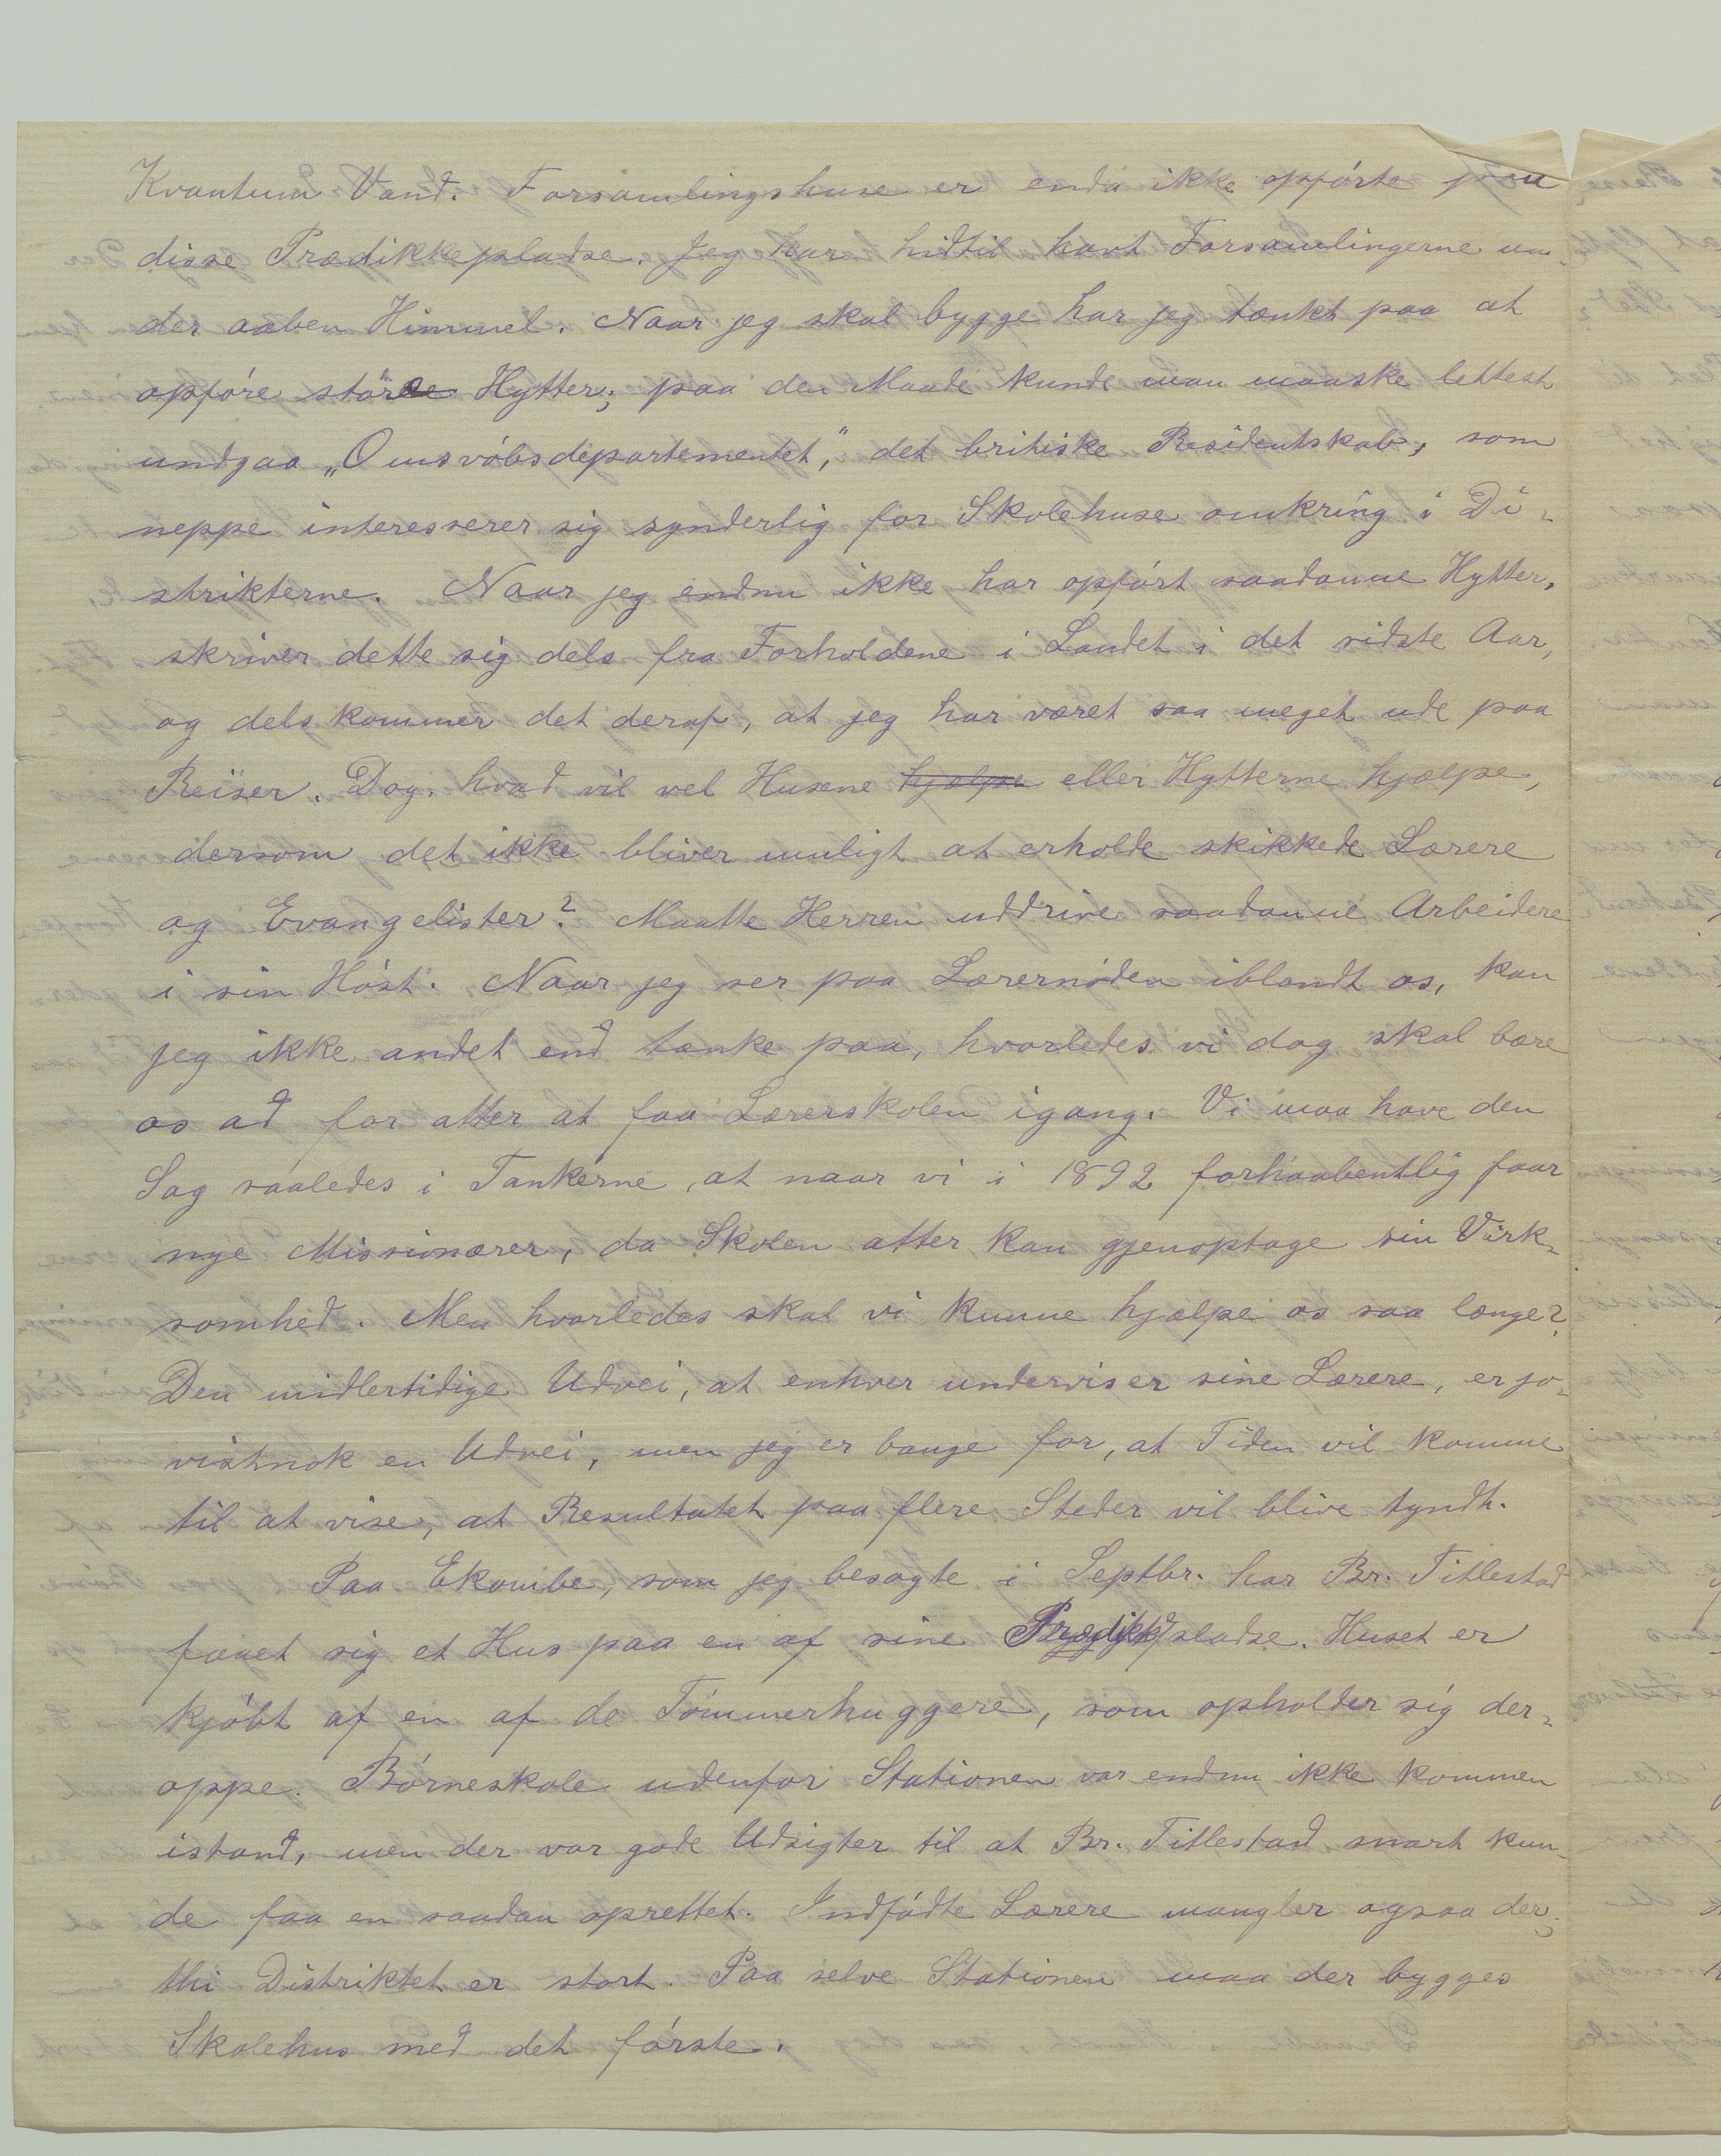 Kvantum Vand. Forsamlingshuse er enda ikke opförte paa
disse Prædikkepladse. Jeg har hidtil havt Forsamlingerne un-
der aaben Himmel. Naar jeg skal bygge har jeg tænkt paa at
opföre större Hytter; paa den Maade kunde man maaske lettest
undgaa „Omsvöbsdepartementet," det britiske Residentskab, som
neppe interesserer sig synderlig for Skolehuse omkring i Di-
strikterne. Naar jeg endnu ikke har opfört saadanne Hytter,
skriver dette sig dels fra Forholdene i Landet i det sidste Aar,
og dels kommer det deraf, at jeg har været saa meget ude paa
Reiser. Dog. hvad vil vel Husene hjælpe eller Hytterne hjælpe,
dersom det ikke bliver muligt at erholde skikkede Lærere
og Evangelister? Maatte Herren uddrive saadanne Arbeidere
i sin Höst. Naar jeg ser paa Lærernöden iblandt os, kan
jeg ikke andet end tænke paa, hvorledes vi dog skal bære
os ad for atter at faa Lærerskolen igang. Vi maa have den
Sag saaledes i Tankerne, at naar vi i 1892 forhaabentlig faar
nye Missionærer, da Skolen atter kan gjenoptage sin Virk-
somhed. Men hvorledes skal vi kunne hjælpe os saa længe?
Den midlertidige Udvei, at enhver underviser sine Lærere, er jo-
vistnok en Udvei, men jeg er bange for, at Tiden vil komme
til at vise, at Resultatet paa flere Steder vil blive tyndt.
Paa Ekombe, som jeg besøgte i Septbr. har Br. Titlestad
faaet sig et Hus paa en af sine Prædikepladse. Huset er
kjöbt af en af de Tömmerhuggere, som opholder sig der-
oppe. Börneskole udenfor Stationen var endnu ikke kommen
istand, men der var gode Udsigter til at Br. Titlestad snart kun-
de faa en saadan oprettet. Indfödte Lærere mangler ogsaa der;
thi Distriktet er stort. Paa selve Stationen maa der bygges
Skolehus med det förste.